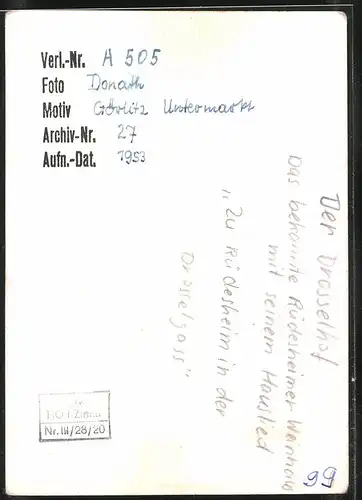 Verl.-Nr. A 505
Foto Donath
Motiv Görlitz Untermarkt
Archiv-Nr. 27
Aufn.-Dat. 1953
Der Drosselhof
Das bekannte Rüdesheimer Weinhaus
mit seinem Hauslied
„Zu Rüdesheim in der
Drosselgass"
Nr. III/28/20
99